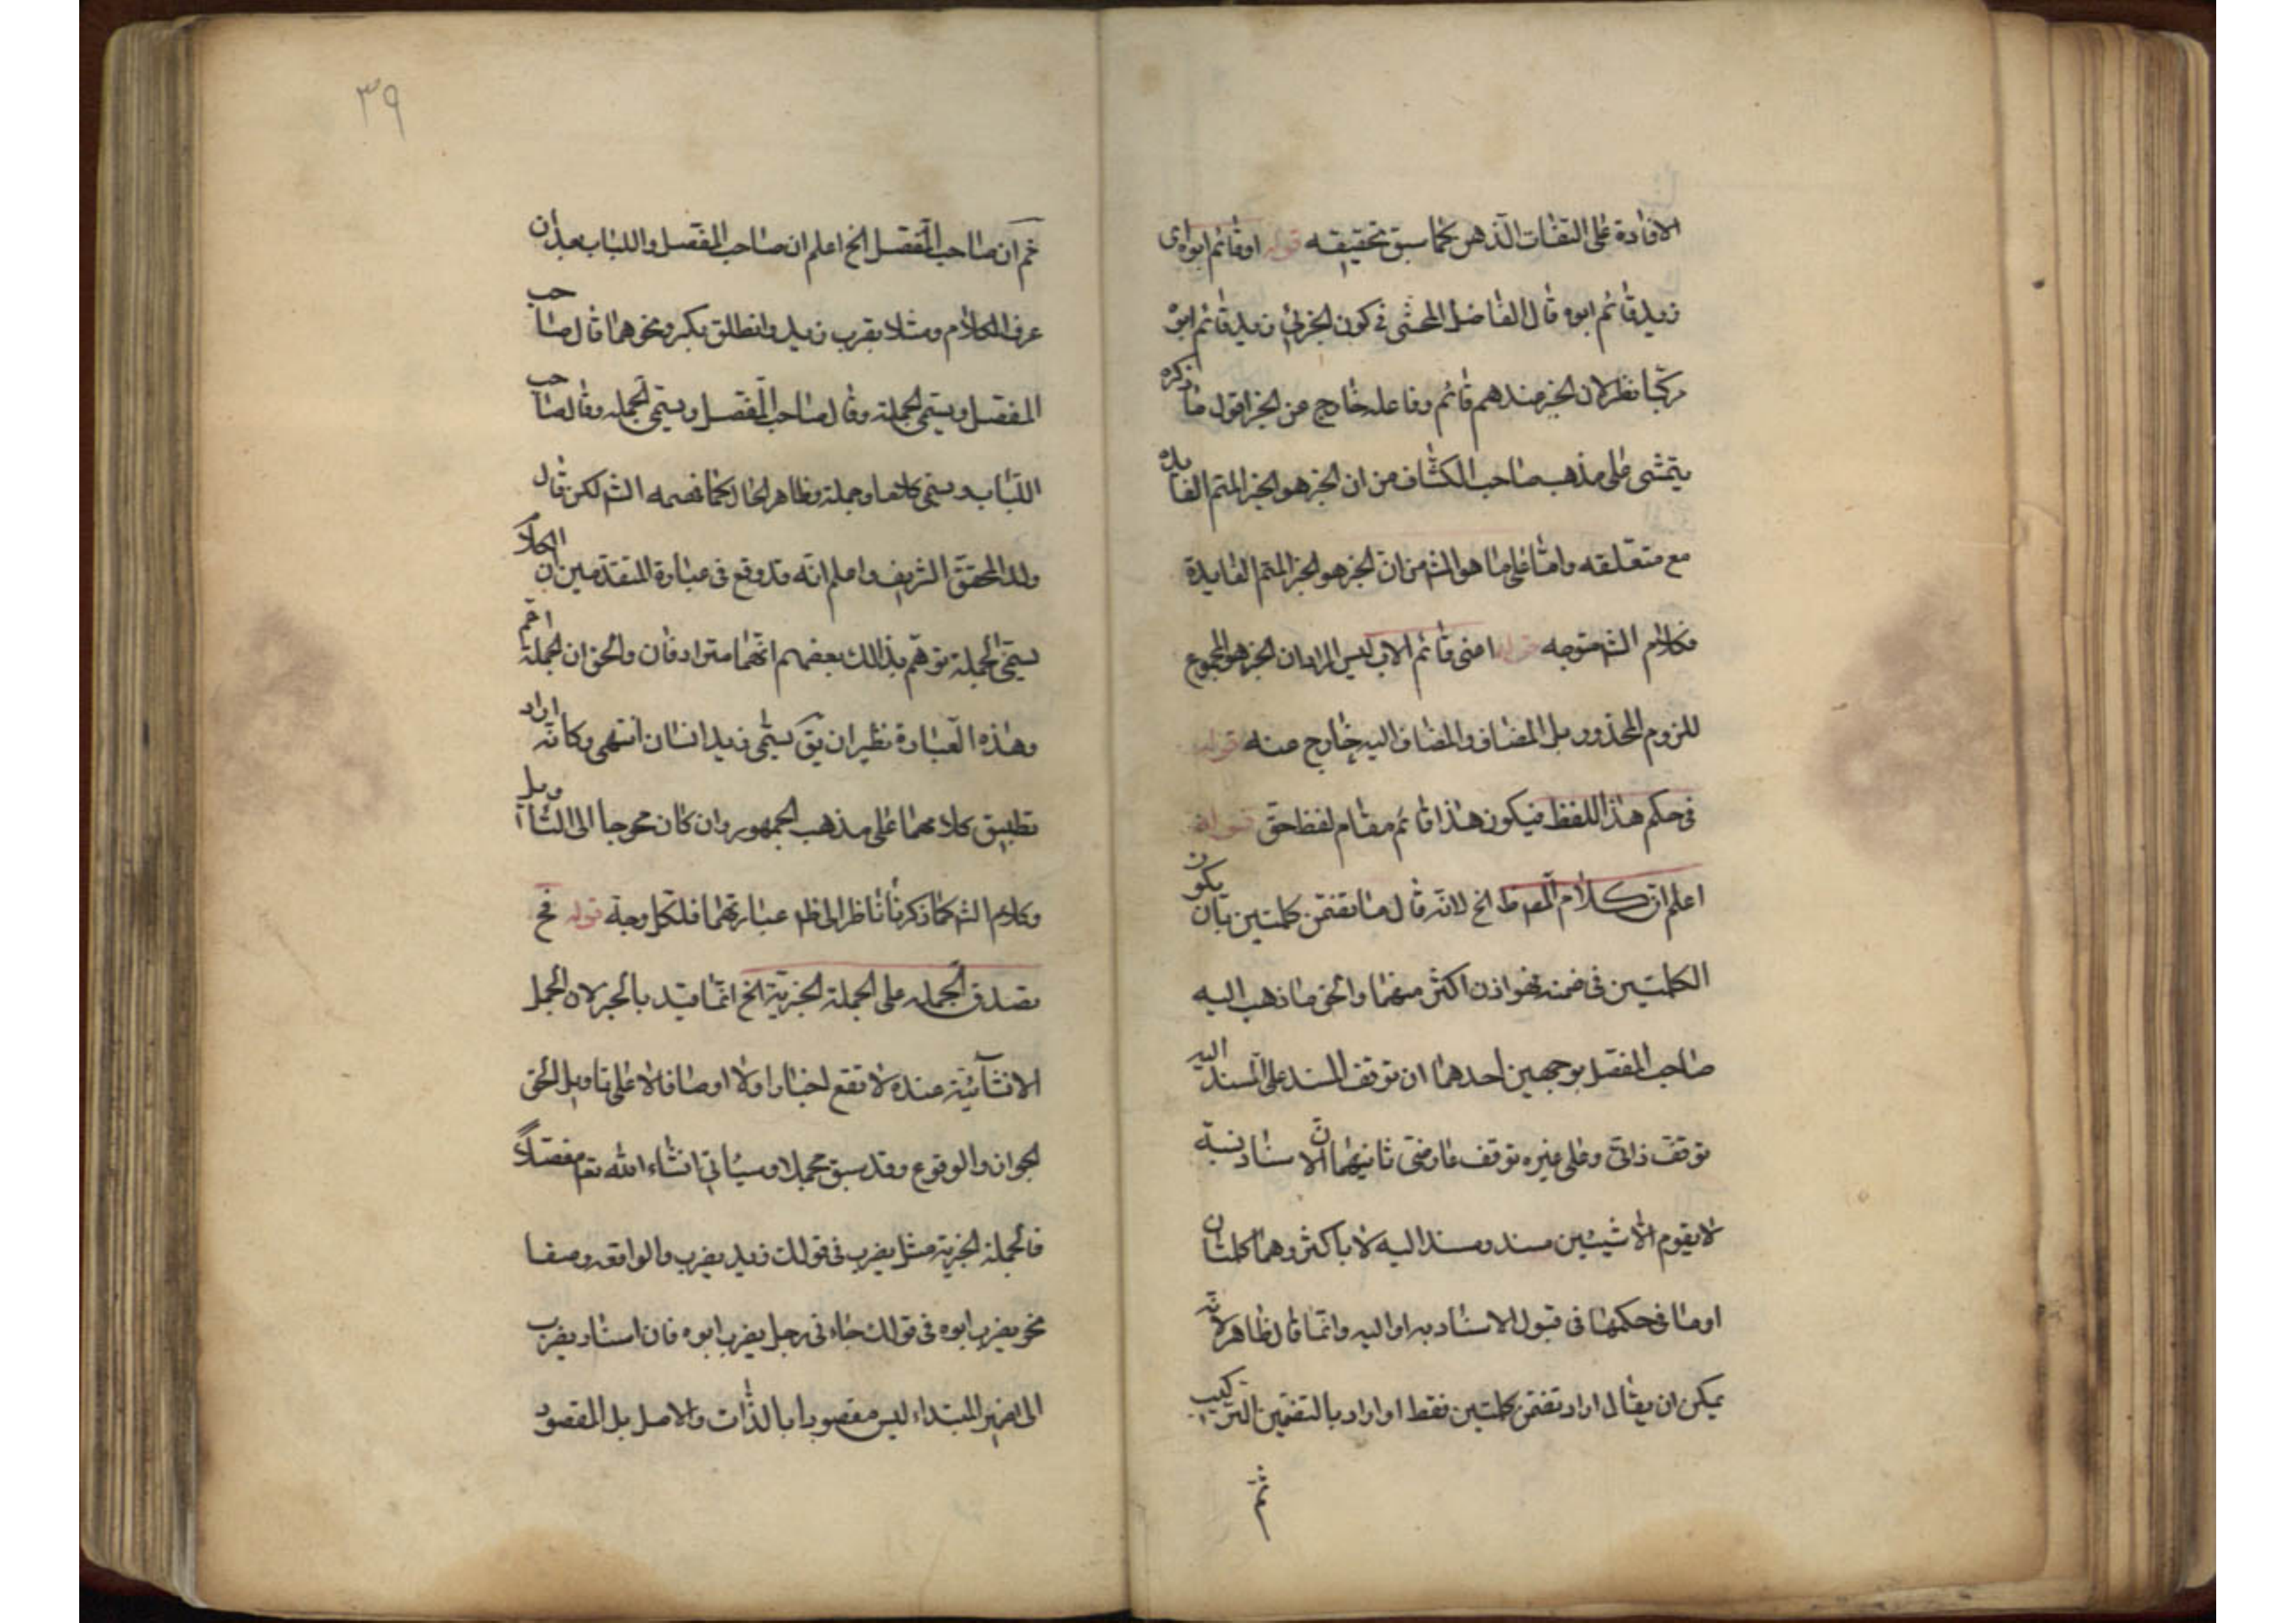 الافادة على التفات الذهن كما سبق تحقيقه قوله او قائم ابوه اى
زيد قائم ابوه قال الفاضل المحشى فى كون الخبر فى زيد قائم ابوه
مركبا نظر لان الخبر عندهم قائم وفاعله خارج عن الخبر اقول ما ذكره
يتمشى على مذهب صاحب الكشاف من ان الخبر هو الخبر المتم الفايده
مع متعلقه واما على ما هو الش من ان الخبر هو الخبر المتم الفايدة
فكلام الش متوجه قوله اعنى قائم الاب ليس المراد ان الخبر هو المجموع
للزوم المحذور بل المضاف والمضاف اليه خارج عنه قوله
فى حكم هذا اللفظ فيكون هذا قائم مقام لفظ حق قوله
اعلم ان كلام المص ظ الخ لانه قال ما تضمن كلمتين بان يكون
الكلمتين فى ضمنه فهو اذن اكثر منهما والحق ما ذهب اليه
صاحب المفصل بوجهين احدهما ان توقف المسند على المسند اليه
توقف ذاتى وعلى غيره توقف عارضى ثانيهما ان الاسناد نسبة
لا يقوم الا بشيئين مسند ومسند اليه لا باكثر وهما كلمتان
او ما فى حكمهما فى قبول الاسناد به او اليه وانما قال ظاهر لانه
يمكن ان يقال اراد تضمن كلمتين فقط او اراد بالتضمين التركيب
ثم
٣٩
ثم ان صاحب المفصل الخ اعلم ان صاحب المفصل واللباب بعد ان
عرف الكلام ومثلا بضرب زيد وانطلق بكر ونحوهما قال صاحب
المفصل ويسمى الجملة وقال صاحب المفصل ويسمى الجمله وقال صاحب
اللباب ويسمى كلاما وجملة وظاهر الحال كما فهمه الش لكن قال
ولد المحقق الشريف واعلم انه قد وقع فى عبارة المتقدمين ان الكلام
يسمى الجملة توهم بذلك بعضهم انهما مترادفان والحق ان الجملة اعم
وهذه العبارة نظير ان يق يسمى زيد انسان انتهى وكانه اراد
تطبيق كلامهما على مذهب الجمهور وان كان محوجا الى التأويل
وكلام الش كما ذكرنا ناظر الى ظ عبارتهما فلكل وجهة قوله فح
يصدق الجمله على الجملة الخبرية الخ انما قيد بالخبر لان الجمل
الانشائية عنده لا تقع اخبارا ولا اوصافا لا على تاويل الحق
الجواز والوقوع وقد سبق مجملا وسيأتى انشاء الله تعا مفصلا
فالجملة الخبرية مثل يضرب فى قولك زيد يضرب والواقعه وصفا
نحو يضرب ابوه فى قولك جاءنى رجل يضرب ابوه فان اسناد يضرب
الى ضمير المبتداء ليس مقصودا بالذات والاصل بل المقصود